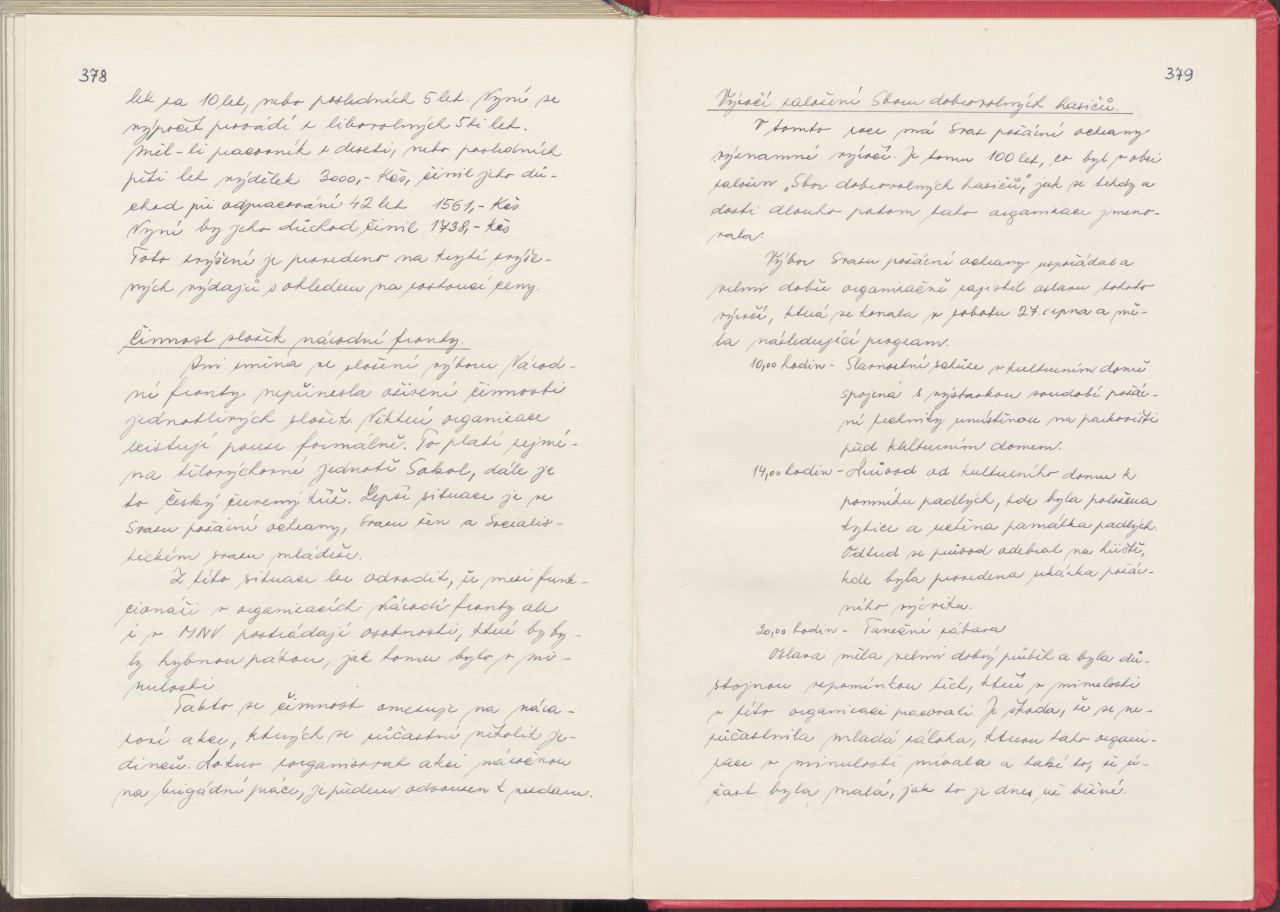 378
lek za 10 let, nebo posledních 5 let. Nyní se
výpočet provádí z libovolných 5ti let.
Měl-li pracovník z deseti, nebo posledních
pěti let výdělek 3000,- Kčs, činil jeho dů-
chod při odpracování 42 let 1561,- Kčs
Nyní by jeho důchod činil 1738,- Kčs
Toto zvýšení je provedeno na krytí zvýše-
ných výdajů s ohledem na rostoucí ceny.
Činnost složek národní fronty.
Ani změna ve složení výboru Národ-
ní fronty nepřinesla oživení činnosti
jednotlivých složek. Některé organizace
existují pouze formálně. To platí zejmé-
na tělovýchovné jednotě Sokol, dále je
to český červený kříž. Lepší situace je ve
Svazu požární ochrany, Svazu žen a Socialis-
tickém svazu mládeže.
Z této situace lze odvodit, že mezi funk-
cionáři v organizacích Národí fronty ale
i v MNV postrádají osobnosti, které by by-
ly hybnou pákou, jak tomu bylo v mi-
nulosti.
Takto se činnost omezuje na nára-
zové akce, kterých se zůčastní několik je-
dinců. Pokus zorganizovat akci náročnou
na brigádní práce, je předem odsouzen k nezdaru.
379
Výročí založení Sboru dobrovolných hasičů.
V tomto roce má Svaz požární ochrany
významné výročí. Je tomu 100 let, co byl v obci
založen „Sbor dobrovolných hasičů," jak se tehdy a
dosti dlouho potom tato organizace jmeno-
vala.
Výbor Svazu požární ochrany uspořádal a
velmi dobře organizačně zajistil oslavu tohoto
výročí, která se konala v sobotu 27. srpna a mě-
la následující program.
10,00 hodin - Slavnostní schůze v kulturním domě
spojená s výstavkou soudobé požár-
ní techniky umístěnou na parkovišti
před kulturním domem.
14,00 hodin - Průvod od kulturního domu k
pomníku padlých, kde byla položena
kytice a uctěna památka padlých.
Odtud se průvod odebral na hřiště,
kde byla provedena ukázka požár-
ního výcviku.
20,00 hodin - Taneční zábava
Oslava měla velmi dobrý průběh a byla dů-
stojnou vzpomínkou těch, kteří v minulosti
v této organizaci pracovali. Je škoda, že se ne-
zúčastnila mladá záloha, kterou tato organi-
zace v minulosti mívala a také to, že ú-
čast byla malá, jak to je dnes už běžné.